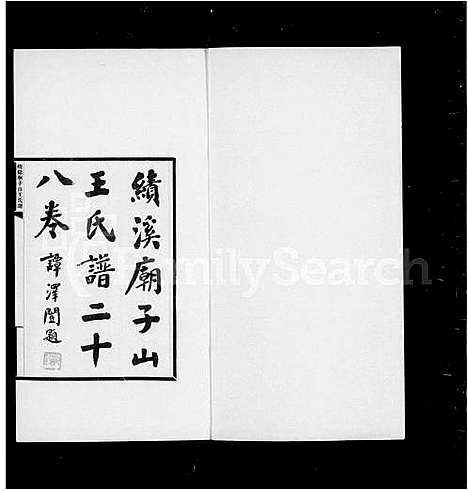 績溪廟子山
王氏譜二十
八卷
譚澤闓題
FamilySearch